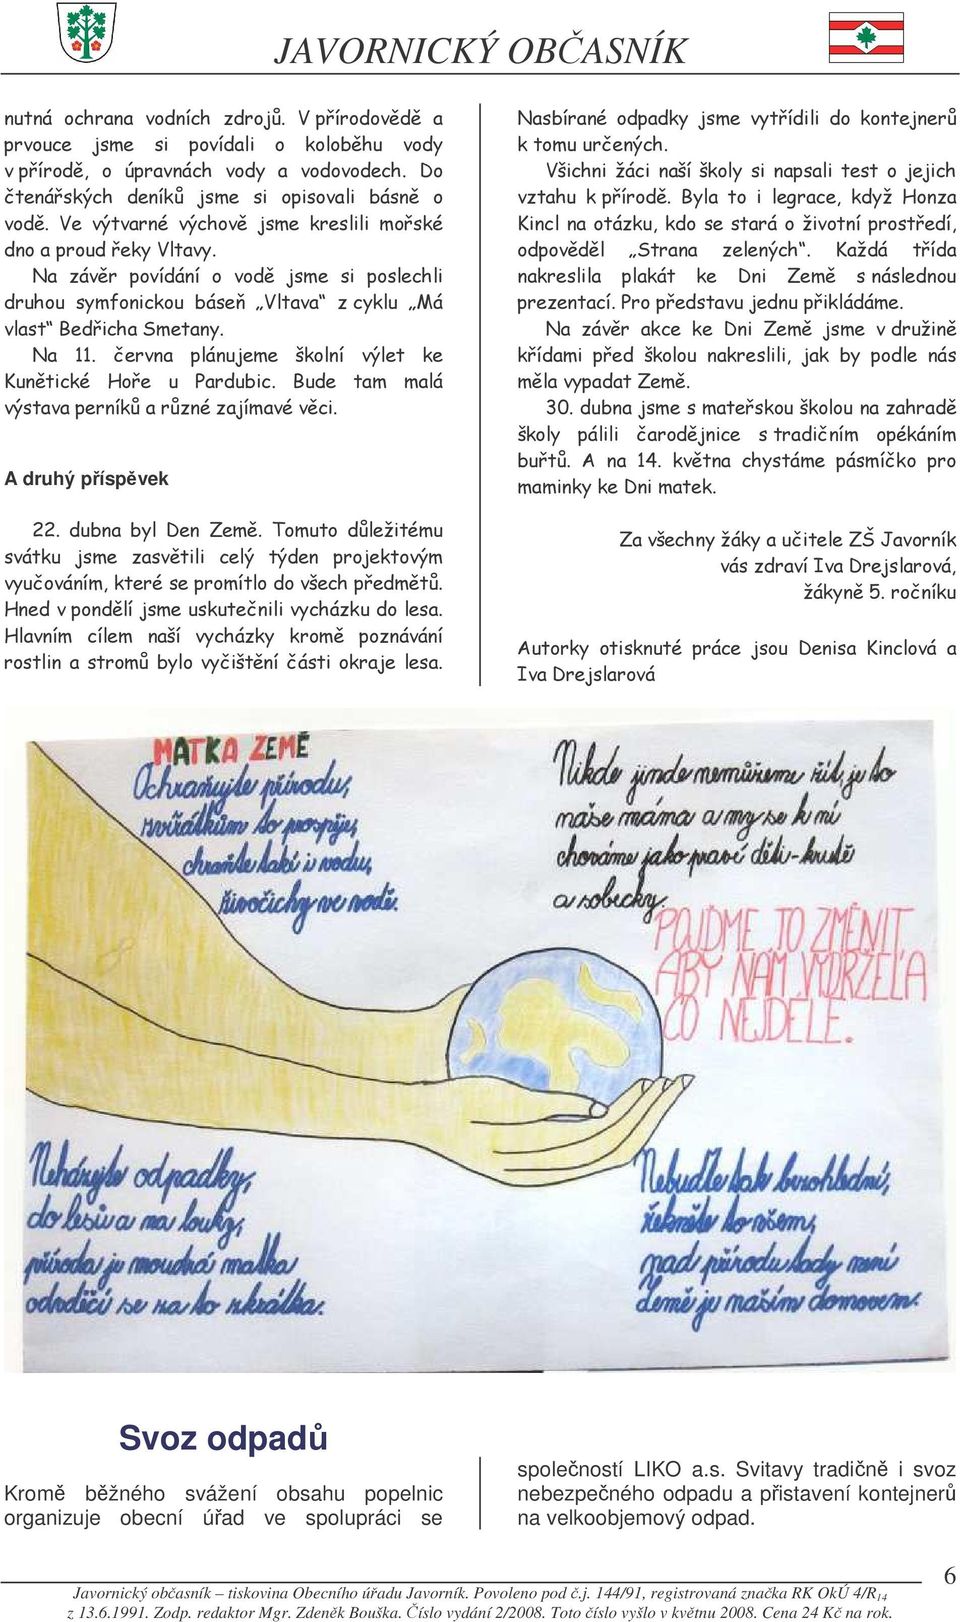 JAVORNICKÝ OBČASNÍK
nutná ochrana vodních zdrojů. V přírodovědě a
prvouce jsme si povídali o koloběhu vody
v přírodě, o úpravnách vody a vodovodech. Do
čtenářských deníků jsme si opisovali básně o
vodě. Ve výtvarné výchově jsme kreslili mořské
dno a proud řeky Vltavy.
Na závěr povídání o vodě jsme si poslechli
druhou symfonickou báseň „Vltava“ z cyklu „Má
vlast“ Bedřicha Smetany.
Na 11. června plánujeme školní výlet ke
Kunětické Hoře u Pardubic. Bude tam malá
výstava perníků a různé zajímavé věci.
A druhý příspěvek
22. dubna byl Den Země. Tomuto důležitému
svátku jsme zasvětili celý týden projektovým
vyučováním, které se promítlo do všech předmětů.
Hned v pondělí jsme uskutečnili vycházku do lesa.
Hlavním cílem naší vycházky kromě poznávání
rostlin a stromů bylo vyčištění části okraje lesa.
Nasbírané odpadky jsme vytřídili do kontejnerů
k tomu určených.
Všichni žáci naší školy si napsali test o jejich
vztahu k přírodě. Byla to i legrace, když Honza
Kincl na otázku, kdo se stará o životní prostředí,
odpověděl „Strana zelených“. Každá třída
nakreslila plakát ke Dni Země s následnou
prezentací. Pro představu jednu přikládáme.
Na závěr akce ke Dni Země jsme v družině
křídami před školou nakreslili, jak by podle nás
měla vypadat Země.
30. dubna jsme s mateřskou školou na zahradě
školy pálili čarodějnice s tradičním opékáním
buřtů. A na 14. května chystáme pásmíčko pro
maminky ke Dni matek.
Za všechny žáky a učitele ZŠ Javorník
vás zdraví Iva Drejslarová,
žákyně 5. ročníku
Autorky otisknuté práce jsou Denisa Kinclová a
Iva Drejslarová
MATKA ZEMĚ
Ochraňujte přírodu,
zvířátkům to prospěje,
chraňte také i vodu,
živočichy ve vodě.
Nikde jinde nemůžeme žít, je to
naše máma a my se k ní
chováme jako praví děti - krutě
a sobecky.
POJĎME TO ZMĚNIT,
ABY NÁM VYDRŽELA
CO NEJDÉLE.
Neházejte odpadky,
do lesů a na louky,
příroda je moudrá matka
odvděčí se na to zkrátka.
Nebuďte tak bezohlední,
řekněte to všem,
nad přírodu tady není
země je naším domovem.
Svoz odpadů
Kromě běžného svážení obsahu popelnic
organizuje obecní úřad ve spolupráci se
společností LIKO a.s. Svitavy tradičně i svoz
nebezpečného odpadu a přistavení kontejnerů
na velkoobjemový odpad.
6
Javornický občasník – tiskovina Obecního úřadu Javorník. Povoleno pod č.j. 144/91, registrovaná značka RK OkÚ 4/R14
z 13.6.1991. Zodp. redaktor Mgr. Zdeněk Bouška. Číslo vydání 2/2008. Toto číslo vyšlo v květnu 2008. Cena 24 Kč na rok.